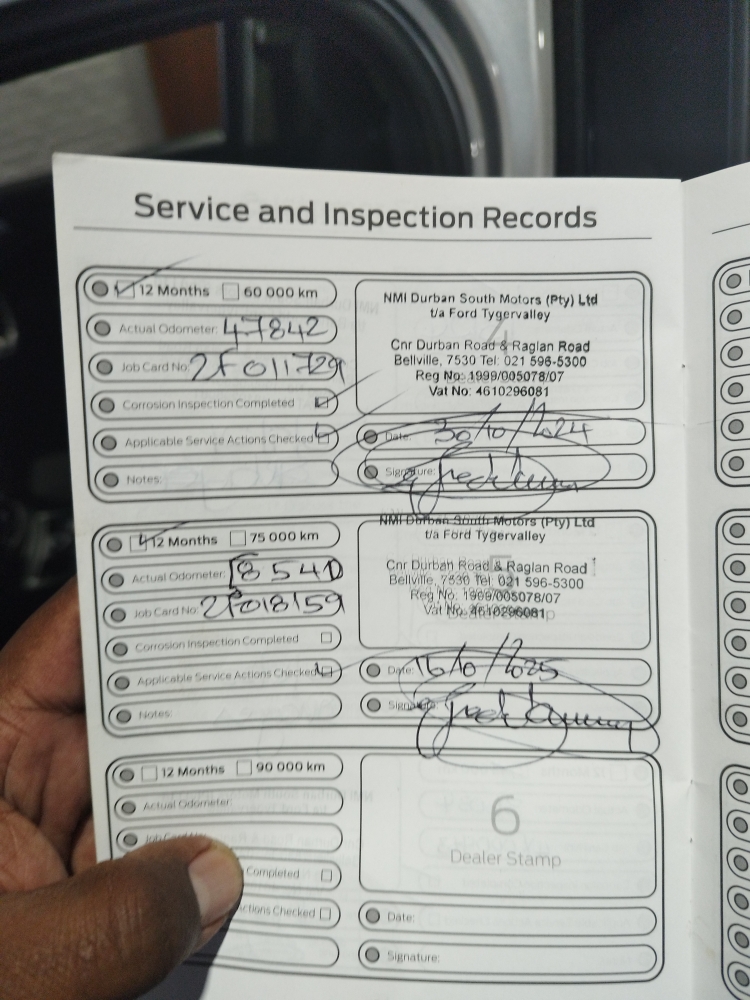 Service and Inspection Records
12 Months 60 000 km
Actual Odometer: 47842
Job Card No: 2F011729
Corrosion Inspection Completed
Applicable Service Actions Checked
Notes:
NMI Durban South Motors (Pty) Ltd
t/a Ford Tygervalley
Cnr Durban Road & Raglan Road
Bellville, 7530 Tel: 021 596-5300
Reg No: 1999/005078/07
Vat No: 4610296081
Date: 30/10/2024
Signature:
12 Months 75 000 km
Actual Odometer:
Job Card No: 2F018159
Corrosion Inspection Completed
Applicable Service Actions Checked
Notes:
NMI Durban South Motors (Pty) Ltd
t/a Ford Tygervalley
Cnr Durban Road & Raglan Road
Bellville, 7530 Tel: 021 596-5300
Reg No: 1999/005078/07
Vat No: 4610296081
Date: 16/10/2025
Signature:
12 Months 90 000 km
Actual Odometer:
Job Card No:
Completed
Actions Checked
6
Dealer Stamp
Date:
Signature: